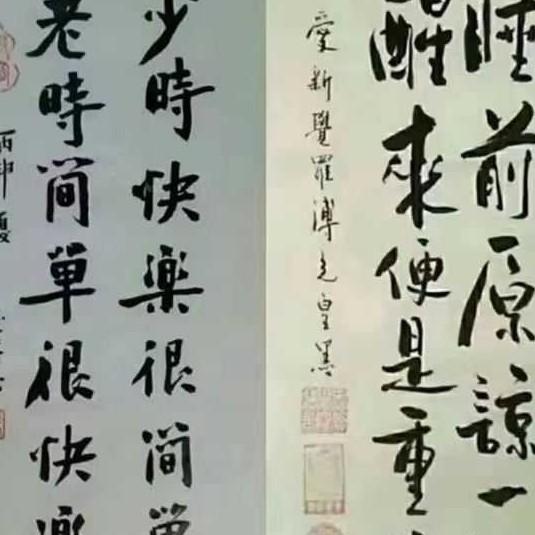 睡前原諒一
醒來便是重
愛新覺羅
少時快樂很簡單
老時簡單很快樂
丙申夏